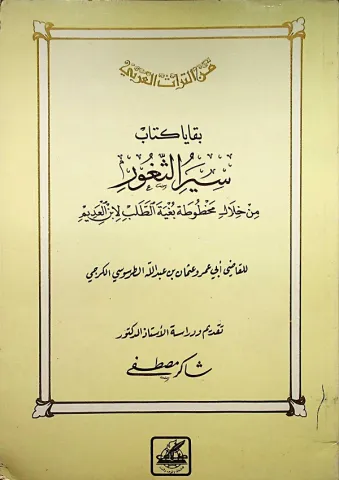 من التراث العربي
بقايا كتاب
سير الثغور
من خلال مخطوطة بغية الطلب لابن العديم
للقاضي أبي عمرو عثمان بن عبد الله الطرسوسي الكرجي
تقديم ودراسة الأستاذ الدكتور
شاكر مصطفى